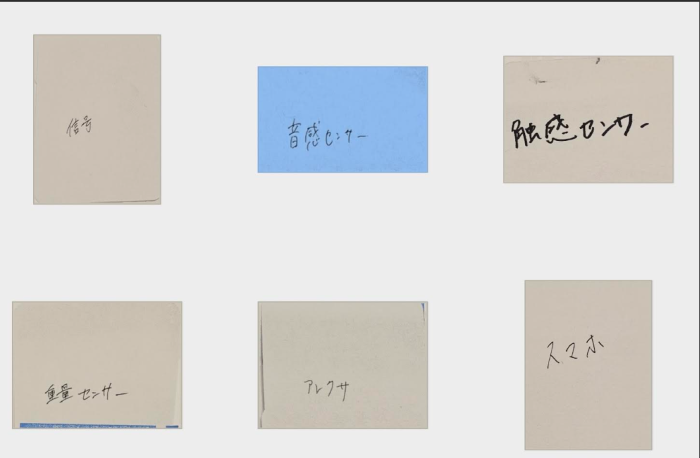 信号
音感センサー
触感センサー
重量センサー
アレクサ
スマホ